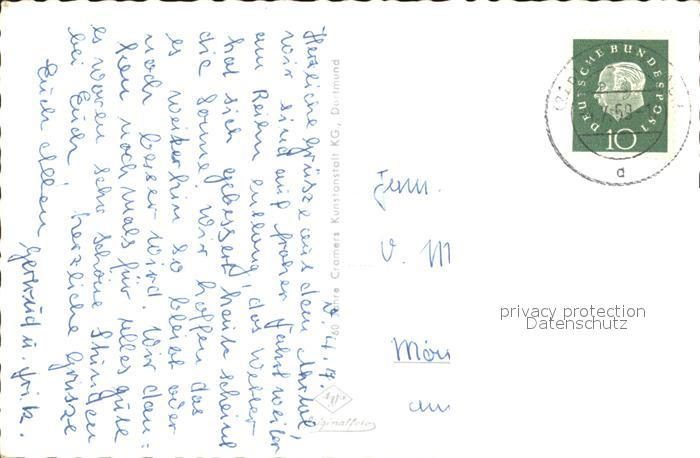 Herzliche Grüsse aus dem
wir sind auf froher Fahrt weiter
am Rhein entlang, das Wetter
hat sich gebessert, heute scheint
die Sonne. Wir hoffen das
es weiterhin so bleibt oder
noch besser wird. Wir dan=
ken nochmals für alles gute
es waren sehr schöne Stunden
bei Euch. herzliche Grüsse
Euch Allen Gertrud u. Fritz.
60 Jahre Cramers Kunstanstalt KG., Dortmund
Agfa
Originalfoto
DEUTSCHE BUNDESPOST
10
59
d
Fam.
V. M
an
privacy protection
Datenschutz